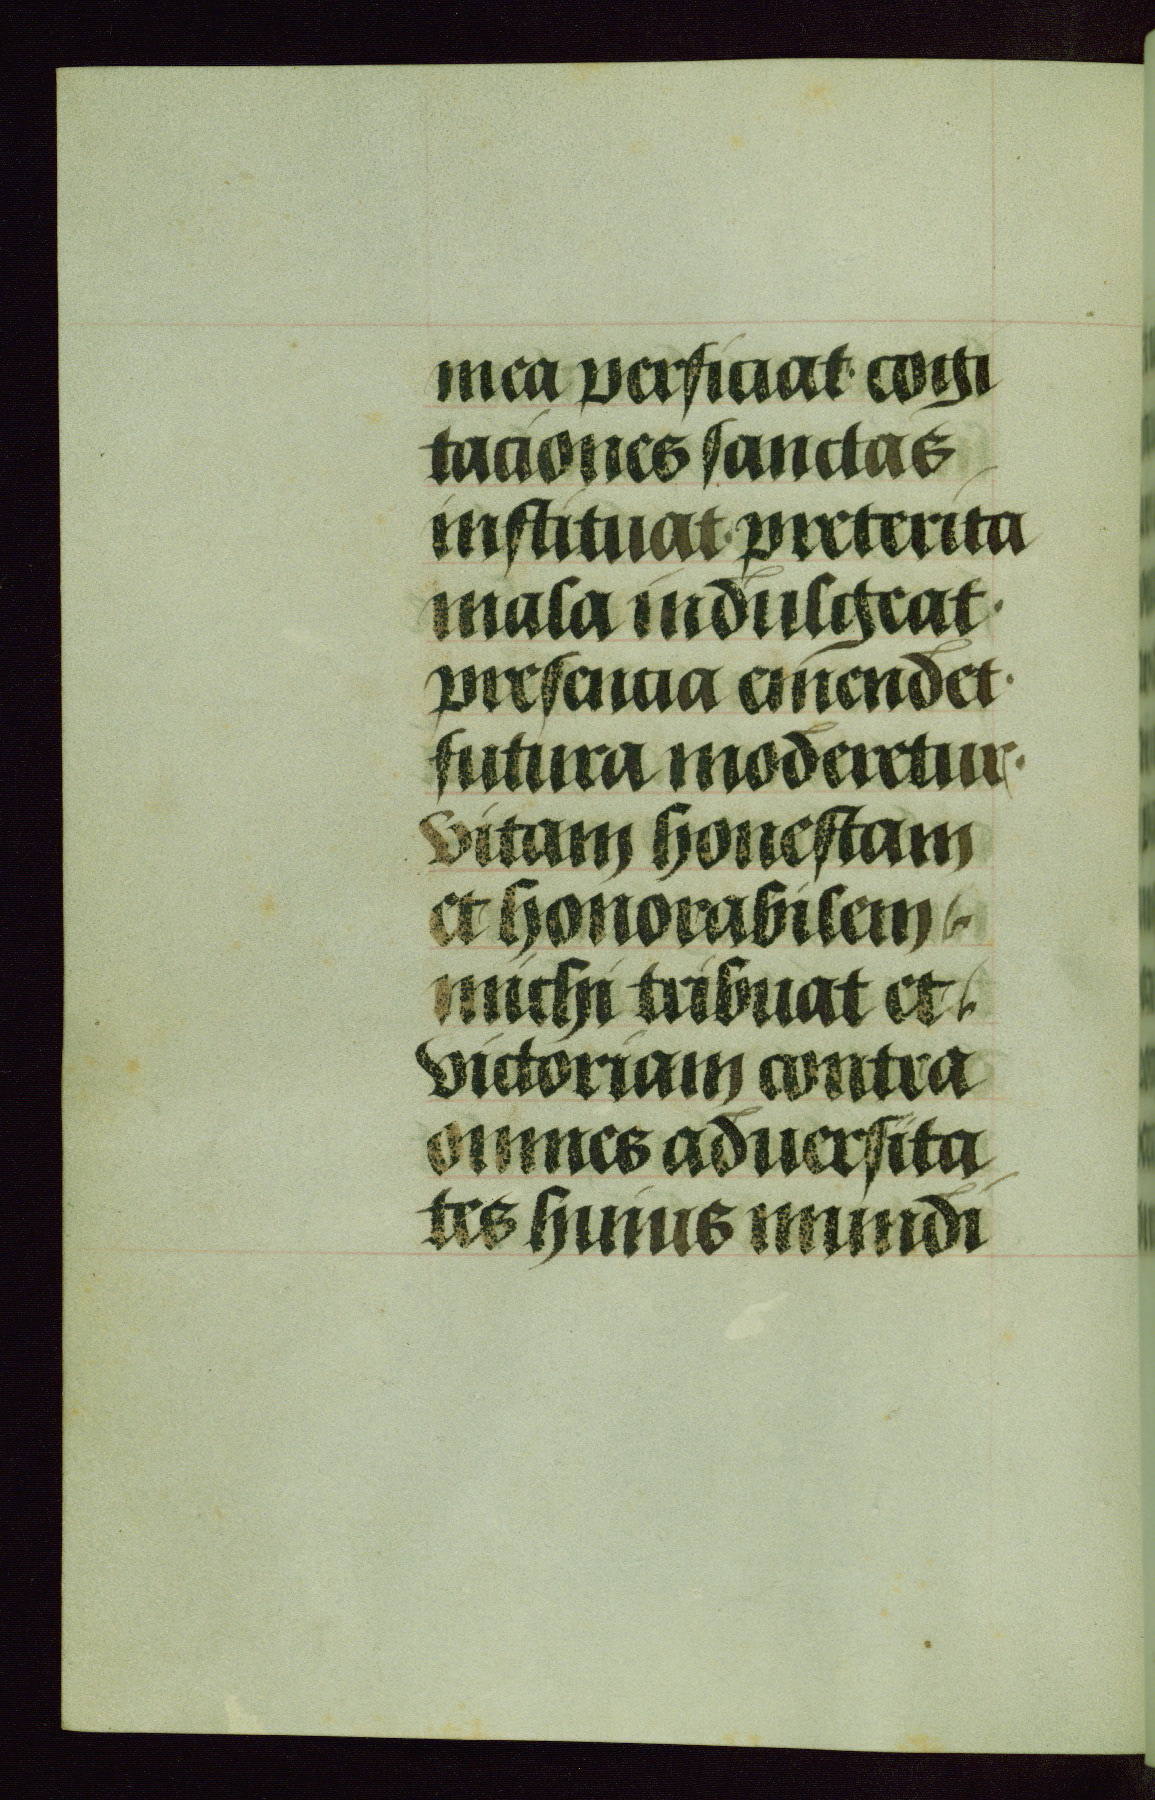 mea perficiat· cogi
taciones sanctas
instituat· preterita
mala indulgeat·
presencia emendet·
futura moderetur·
vitam honestam
et honorabilem
michi tribuat et
victoriam contra
omnes aduersita
tes huius mundi